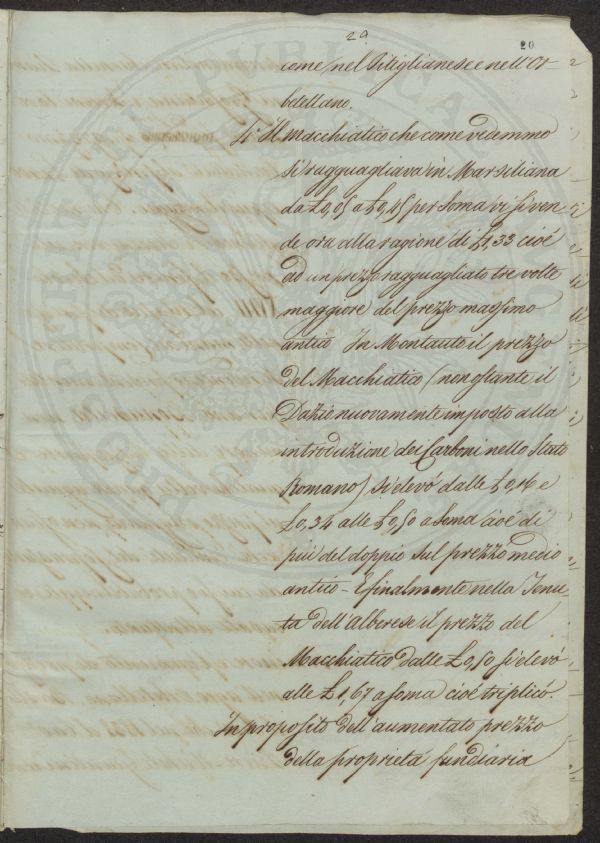 29
20
come nel Pitiglianese e nell'Or-
betellano.
Il Macchiatico che come vedemmo
si ragguagliava in Marsiliana
da £0,05 a £0,45 per Soma vi si ven-
de ora alla ragione di £1,33 cioè
ad un prezzo ragguagliato tre volte
maggiore del prezzo massimo
antico In Montauto il prezzo
del Macchiatico (nonostante il
Dazio nuovamente imposto alla
introduzione dei Carboni nello Stato
Romano) si elevó dalle £0,16 e
£0,34 alle £0,50 a Soma cioè di
più del doppio sul prezzo medio
antico - E finalmente nella Tenu-
ta dell'Alberese il prezzo del
Macchiatico dalle £0,50 si elevó
alle £1,67 a soma cioé triplicó.
In proposito dell'aumentato prezzo
della proprietá fundiaria